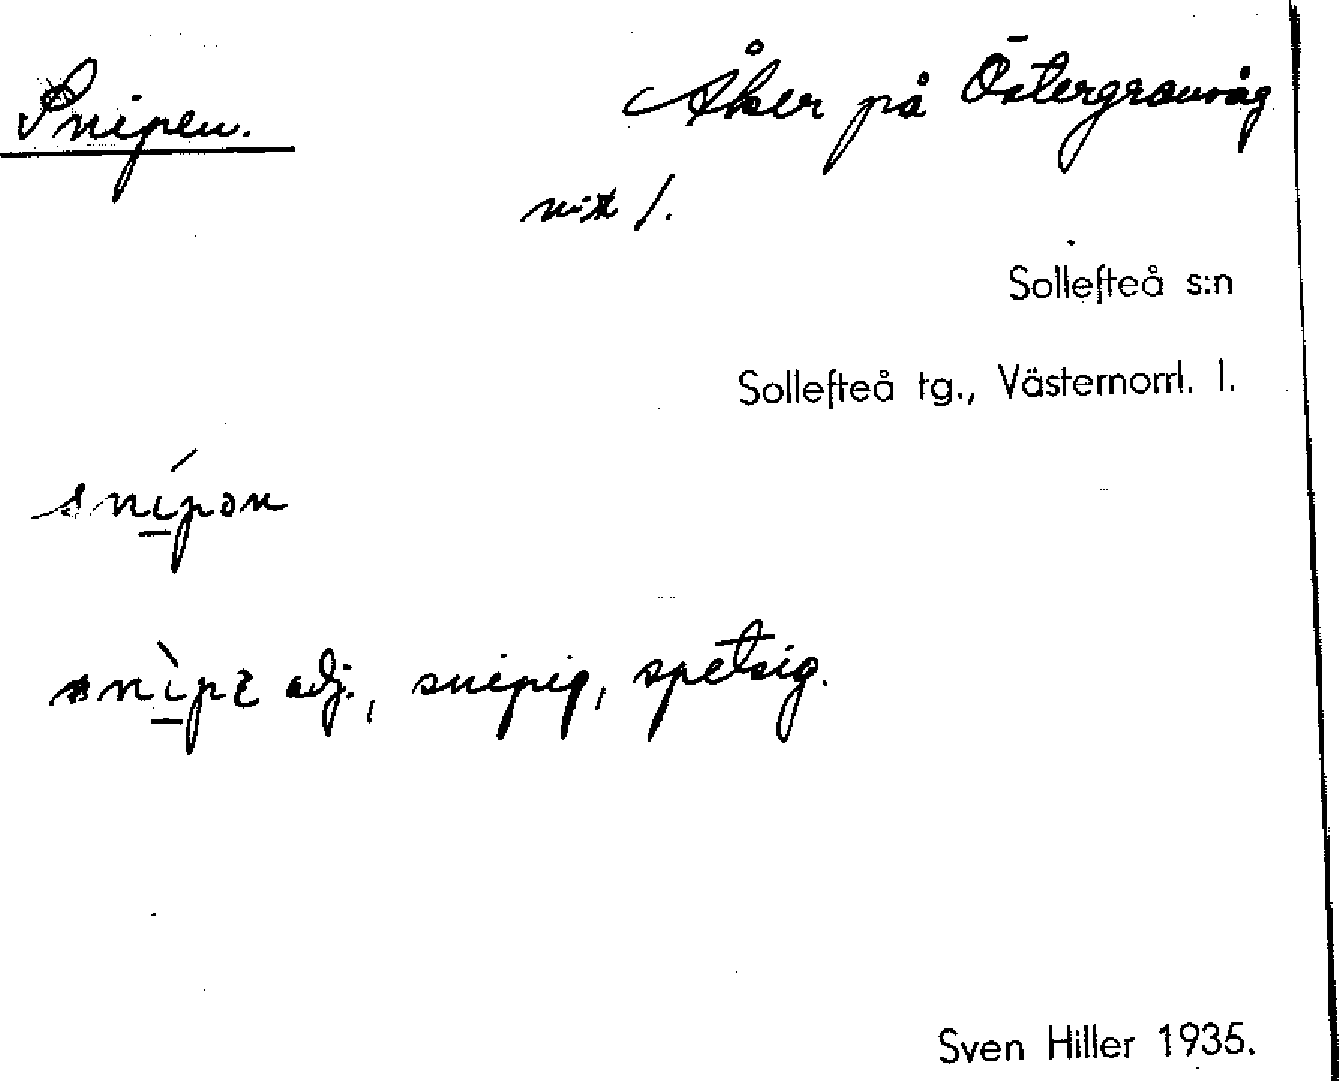 Snipen. Åker på Östergranvåg
n:r 1.
Sollefteå s:n
Sollefteå tg., Västernorrl. l.
snípən
snìpɩ adj., snipig, spetsig.
Sven Hiller 1935.